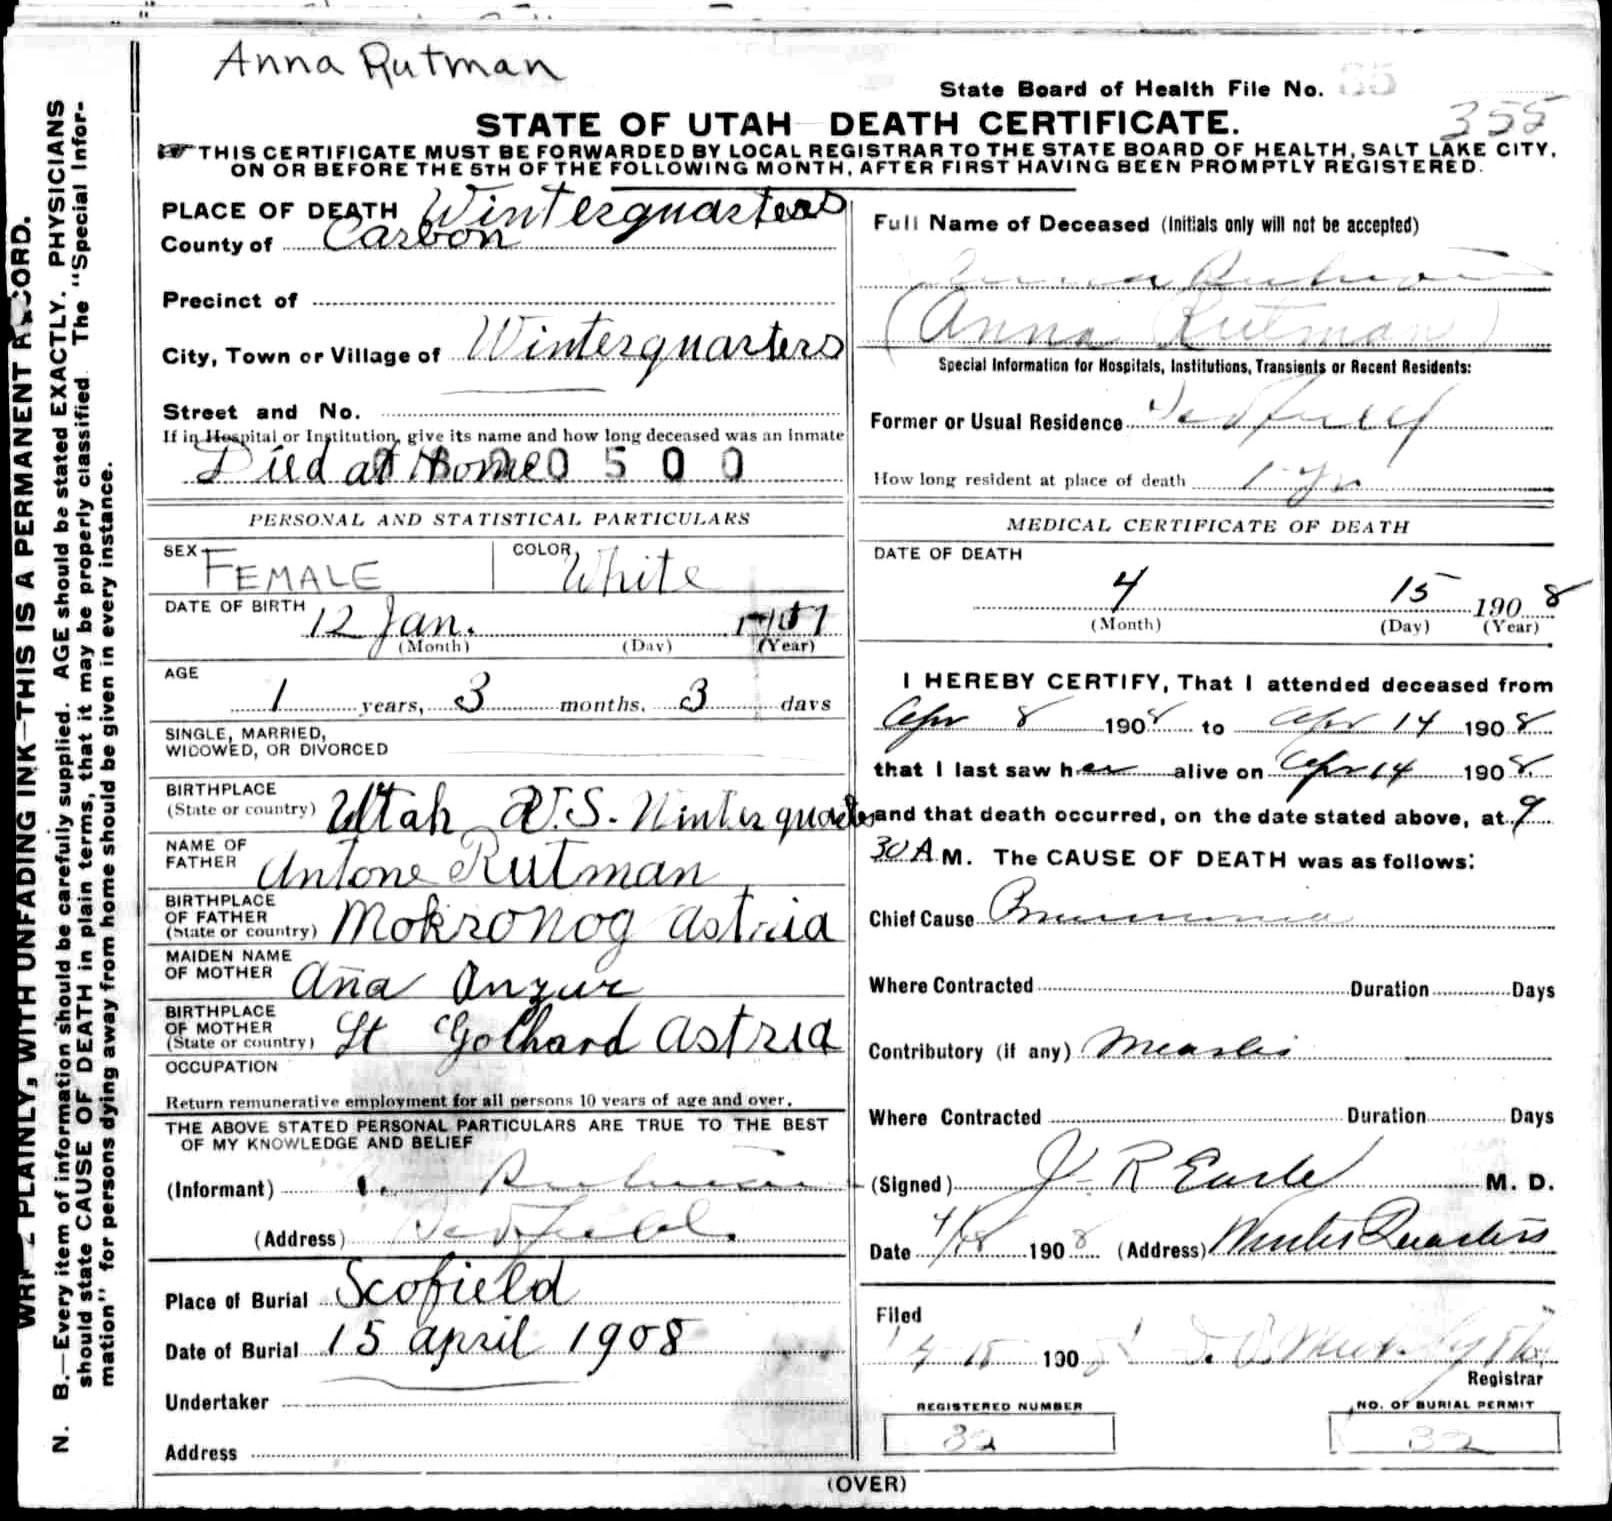 Anna Rutman
State Board of Health File No. 35
355
STATE OF UTAH DEATH CERTIFICATE.
☞ THIS CERTIFICATE MUST BE FORWARDED BY LOCAL REGISTRAR TO THE STATE BOARD OF HEALTH, SALT LAKE CITY,
ON OR BEFORE THE 5TH OF THE FOLLOWING MONTH, AFTER FIRST HAVING BEEN PROMPTLY REGISTERED.
WRITE PLAINLY, WITH UNFADING INK—THIS IS A PERMANENT RECORD.
N. B.—Every item of information should be carefully supplied. AGE should be stated EXACTLY. PHYSICIANS
should state CAUSE OF DEATH in plain terms, that it may be properly classified. The "Special Infor-
mation" for persons dying away from home should be given in every instance.
PLACE OF DEATH Winterquarters
County of Carbon
Precinct of
City, Town or Village of Winterquarters
Street and No.
If in Hospital or Institution, give its name and how long deceased was an inmate
Died at Home 0 5 0 0
PERSONAL AND STATISTICAL PARTICULARS
SEX FEMALE COLOR White
DATE OF BIRTH 12 Jan. 1907
(Month) (Day) (Year)
AGE
1 years, 3 months, 3 days
SINGLE, MARRIED,
WIDOWED, OR DIVORCED
BIRTHPLACE
(State or country) Utah U.S. Winterquarters
NAME OF
FATHER Antone Rutman
BIRTHPLACE
OF FATHER
(State or country) Mokronog Astria
MAIDEN NAME
OF MOTHER Ana Anzur
BIRTHPLACE
OF MOTHER
(State or country) St Gothard Astria
OCCUPATION
Return remunerative employment for all persons 10 years of age and over.
THE ABOVE STATED PERSONAL PARTICULARS ARE TRUE TO THE BEST
OF MY KNOWLEDGE AND BELIEF
(Informant)
(Address)
Place of Burial Scofield
Date of Burial 15 april 1908
Undertaker
Address
Full Name of Deceased (Initials only will not be accepted)
(Anna Rutman)
Special Information for Hospitals, Institutions, Transients or Recent Residents:
Former or Usual Residence
How long resident at place of death 1 yr
MEDICAL CERTIFICATE OF DEATH
DATE OF DEATH
4 15 1908
(Month) (Day) (Year)
I HEREBY CERTIFY, That I attended deceased from
Apr 8 1908 to Apr 14 1908
that I last saw her alive on Apr 14 1908.
and that death occurred, on the date stated above, at 9
30 A M. The CAUSE OF DEATH was as follows:
Chief Cause Pneumonia
Where Contracted Duration Days
Contributory (if any) Measles
Where Contracted Duration Days
(Signed) J. R Earle M. D.
Date 4/18 1908 (Address) Winter Quarters
Filed
4 15 1908
Registrar
REGISTERED NUMBER
32
NO. OF BURIAL PERMIT
32
(OVER)